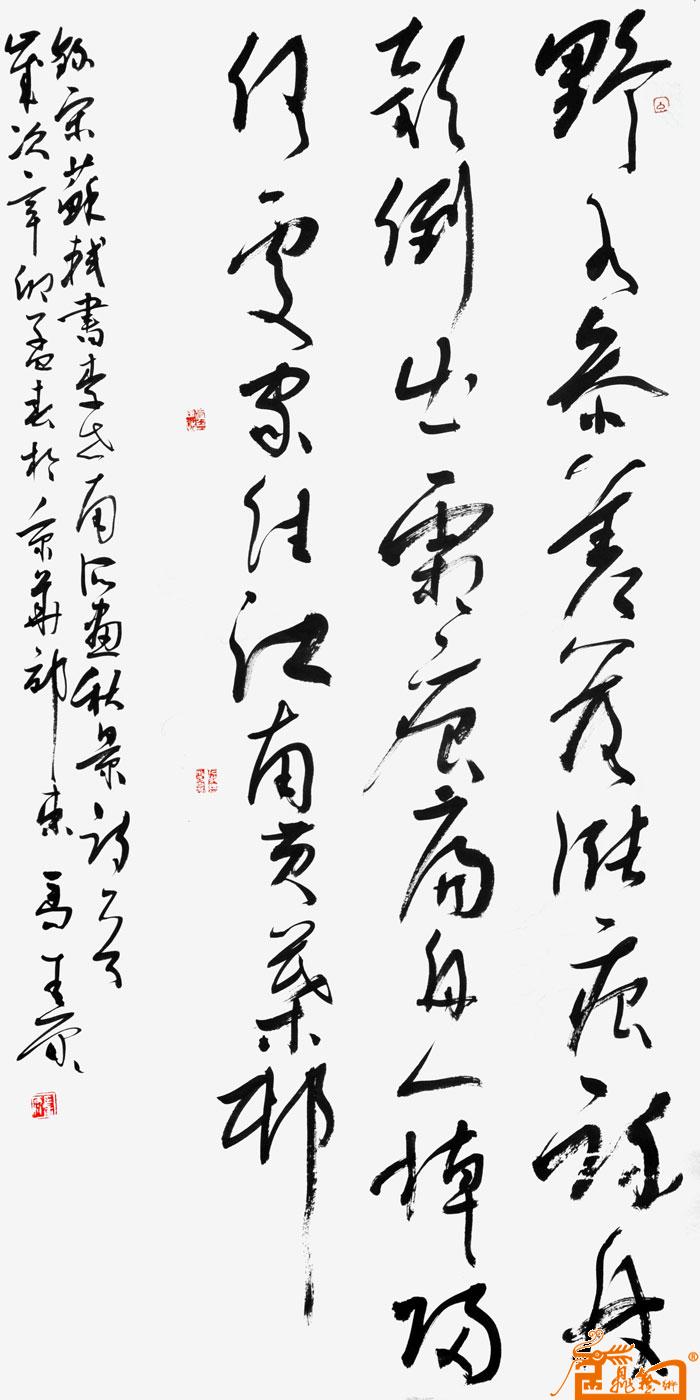 野水參差落漲痕疏林
欹倒出霜根扁舟一棹歸
何處家住江南黄葉邨
錄宋蘇軾書李世南所畫秋景詩
歲次辛卯孟春於京華